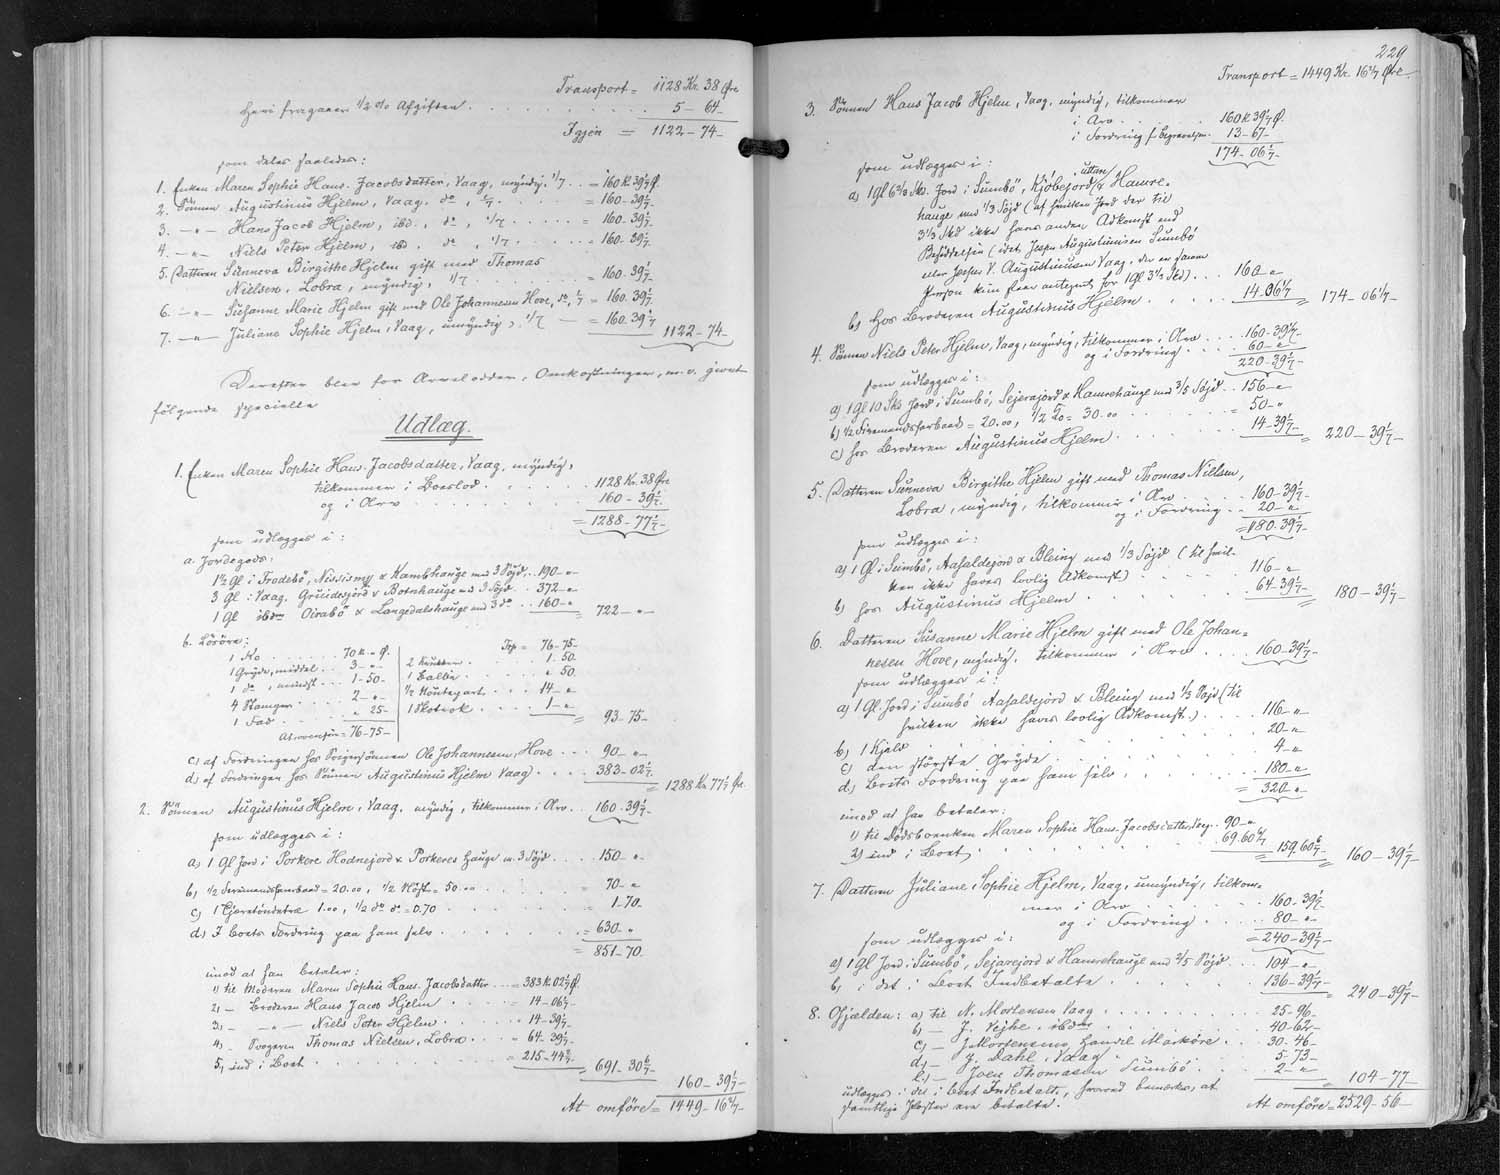 Transport = 1128 Kr. 38 Øre
Heri fragaar 1/2 % Afgiften . . . 5 - 64 -
Igjen = 1122 - 74 -
som deles saaledes:
1. Enken Maren Sophie Hans-Jacobsdatter, Vaag, myndig, 1/7 . . = 160 Kr. 39 1/7 Ø.
2. Sønnen Augustinus Hjelm, Vaag, do, 1/7 . . = 160 - 39 1/7 -
3. - " - Hans Jacob Hjelm, ibd., do, 1/7 . . = 160 - 39 1/7 -
4. - " - Niels Peter Hjelm, ibd, do, 1/7 . . = 160 - 39 1/7 -
5. Datteren Sunneva Birgithe Hjelm gift med Thomas
Nielsen, Lobra, myndig, 1/7 . . = 160 - 39 1/7 -
6. - " - Susanne Marie Hjelm gift med Ole Johannesen Hove, do, 1/7 = 160 - 39 1/7 -
7. - " - Juliane Sophie Hjelm, Vaag, umyndig, 1/7 - = 160 - 39 1/7 1122 - 74 -
Derefter blev for Arvelodder, Omkostninger, m.v. gjort
følgende specielle
Udlæg.
1. Enken Maren Sophie Hans-Jacobsdatter, Vaag, myndig,
tilkommer i Boeslod . . . 1128 Kr. 38 Øre
og i Arv . . . 160 - 39 1/7 -
= 1288 - 77 1/7 -
som udlægges i:
a. Jordegods:
1 1/2 Gl i Frodebø, & Kambhauge med 3 Søjd . . 190 - "
3 Gl i Vaag, & Botnhauge med 3 Søjd . 372 - "
1 Gl ibdm Oirabø & Langedalshauge med 3 do . . 160 - " = 722 - " -
b. Løsøre: Trp = 76 - 75 -
1 Ko . . . 70 K. " Ø. 2 . . . 1 - 50
1 Gryde, middel . . 3 - " - 1 Balle . . . " 50
1 do, mindst . . 1 - 50 - 1/2 . . 14 - "
4 Stamper . . 2 - " - 1 . . 1 - "
1 Fad . . . " 25 - = 93 - 75 -
At overføre = 76 - 75 -
c) af Fordringen hos Svigersønnen Ole Johannesen, Hove . . . 90 - " -
d) af Fordringen hos Sønnen Augustinus Hjelm Vaag) . . . 383 - 02 1/7 = 1288 Kr 77 1/7 Øre
2. Sønnen Augustinus Hjelm, Vaag, myndig, tilkommer i Arv . . 160 - 39 1/7 -
som udlægges i:
a) 1 Gl Jord i Porkere Hodnejord & Porkeres Hauge m. 3 Søjd . . . 150 - "
b) 1/2 = 20.00, 1/2 = 50.00 . . . 70 - "
c) 1 1.00, 1/2 do do = 0.70 . . . 1 - 70 -
d) I Boets Fordring paa ham selv . . . = 630 - "
= 851 - 70 -
imod at han betaler:
1) til Moderen Maren Sophie Hans-Jacobsdatter . . . 383 K 02 1/7 Ø.
2) - Broderen Hans Jacob Hjelm . . . " 14 - 06 1/7 -
3) - " - Niels Peter Hjelm . . . " 14 - 39 1/7 -
4) - Svogeren Thomas Nielsen, Lobra . . . " 64 - 39 1/7 -
5) ind i Boet . . . = 215 - 44 2/7 - = 691 - 30 6/7
160 - 39 1/7 -
At omføre = 1449 - 16 3/7 -
229
Transport = 1449 Kr. 16 3/7 Øre
3. Sønnen Hans Jacob Hjelm, Vaag, myndig, tilkommer
i Arv . . . 160 K 39 1/7 Ø.
i Fordring f. Begravelsen . 13 - 67 -
174 - 06 1/7 -
som udlægges i:
uttan
a) 1 Gl 6 2/3 Sk. Jord i Sumbø, Kjøbejord & Hamre-
hauge med 1/3 Søjd (af hvilken Jord der til
3 1/3 Skd ikke haves anden Adkomst end
Besiddelsen (idet Jesper Augustinussen Sumbø
eller Jesper V. Augustinussen Vaag, der er samme
Person kun staar antegnet for 1 Gl 3 1/3 Skd) . . . 160 - "
b) Hos Broderen Augustinus Hjelm . . . 14 - 06 1/7 = 174 - 06 1/7 -
4. Sønnen Niels Peter Hjelm, Vaag, myndig, tilkommer i Arv . . . 160 - 39 1/7 -
og i Fordring . . . 60 - "
220 - 39 1/7 -
som udlægges i:
a) 1 Gl 10 Sk Jord i Sumbø, Sejerajord & Hamrehauge med 3/5 Søjd . . 156 - "
b) 1/2 Firemandsfarbaad = 20.00, 1/2 = 30.00 . . . = 50 - "
c) hos Broderen Augustinus Hjelm . . . 14 - 39 1/7 - = 220 - 39 1/7 -
5. Datteren Sunneva Birgithe Hjelm gift med Thomas Nielsen,
Lobra, myndig, tilkommer i Arv . . . 160 - 39 1/7 -
og i Fordring . . 20 - "
= 180 - 39 1/7 -
som udlægges i:
a) 1 Gl i Sumbø, Aafaldejord & Bleing med 1/3 Søjd (til hvil-
ken ikke haves lovlig Adkomst) . . . 116 - "
b) hos Augustinus Hjelm . . . 64 - 39 1/7 - = 180 - 39 1/7 -
6. Datteren Susanne Marie Hjelm gift med Ole Johan-
nesen Hove, myndig, tilkommer i Arv . . . 160 - 39 1/7 -
som udlægges i:
a) 1 Gl. Jord i Sumbø Aafaldejord & Bleing med 1/3 Søjd (til
hvilken ikke haves lovlig Adkomst.) . . . 116 - "
b) 1 Kjølv . . . 20 - "
c) den største Gryde . . . 4 - "
d) Boets Fordring paa ham selv . . . 180 - "
= 320 - "
imod at han betaler:
1) til Dødsboenken Maren Sophie Hans-Jacobsdatter, Vaag . . 90 - "
2) ind i Boet . . . 69.60 6/7 = 159.60 6/7 160 - 39 1/7 -
7. Datteren Juliane Sophie Hjelm, Vaag, umyndig, tilkom-
mer i Arv . . . 160 - 39 1/7 -
og i Fordring . . . 80 - "
= 240 - 39 1/7 -
som udlægges i:
a) 1 Gl Jord i Sumbø, Sejerejord & Hamrehauge med 2/5 Søjd . . . 104 - "
b) i det i Boet Indbetalte . . . 136 - 39 1/7 - = 240 - 39 1/7 -
8. Gjælden: a) til N. Mortensen Vaag . . . 25 - 96 -
b) - J. Vejhe, ibdm . . . 40 - 62 -
c) - J. Mortensens Handel Madkøre . . . 30 - 46 -
d) - J. Dahl, Vaag . . . 5 - 73 -
e) - Joen Thomasen Sumbø . . . 2 - " = 104 - 77 -
udlægges i det i Boet Indbetalte, hvorved bemærkes, at
samtlige Poster ere betalte. At omføre = 2529 - 56 -